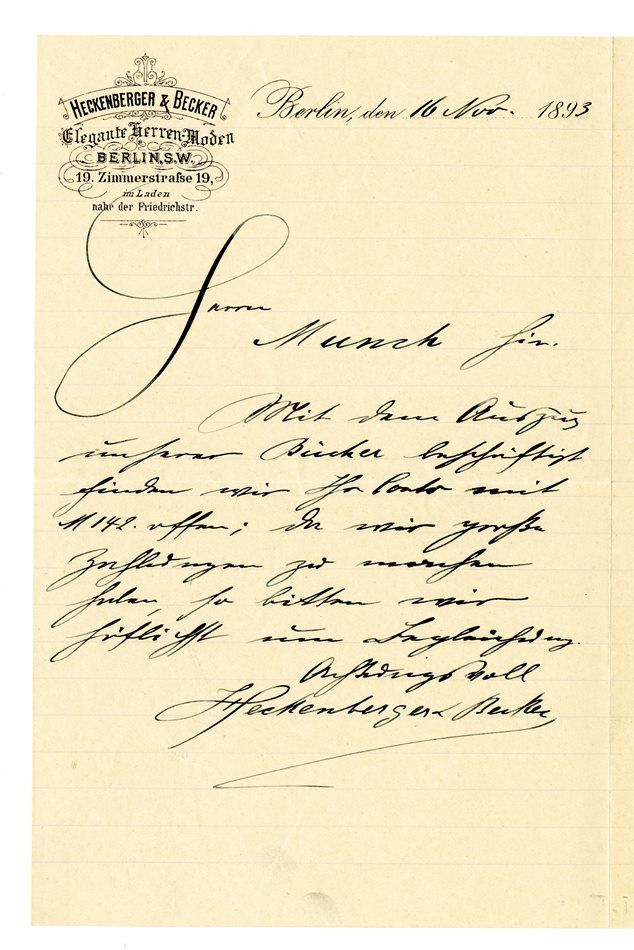 HECKENBERGER & BECKER
Elegante Herren-Moden
BERLIN, S.W.
19. Zimmerstraße 19,
im Laden
nahe der Friedrichstr.
Berlin, den 16 Nov. 1893
Herrn
Munch hier.
Mit dem Auszug
unserer Bücher beschäftigt
finden wir Ihr Conto mit
M 142. offen; da wir große
Zahlungen zu machen
haben, so bitten wir
höflichst um Begleichung.
Achtungsvoll
Heckenberger & Becker